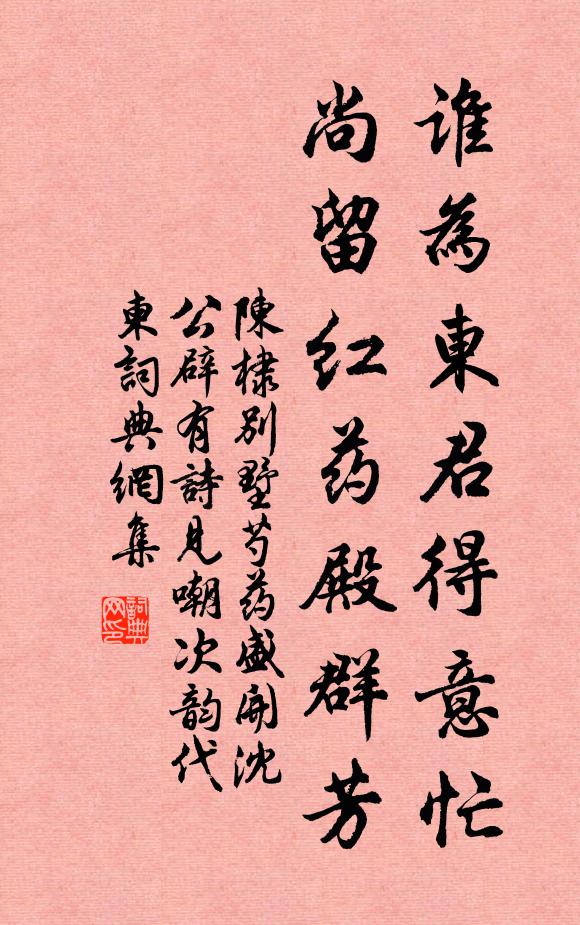 誰為東君得意忙
尚留红药殿群芳
陳棣別墅芍药盛開沈
公辟有詩見嘲次韵代
東詞典網集
詞典网印